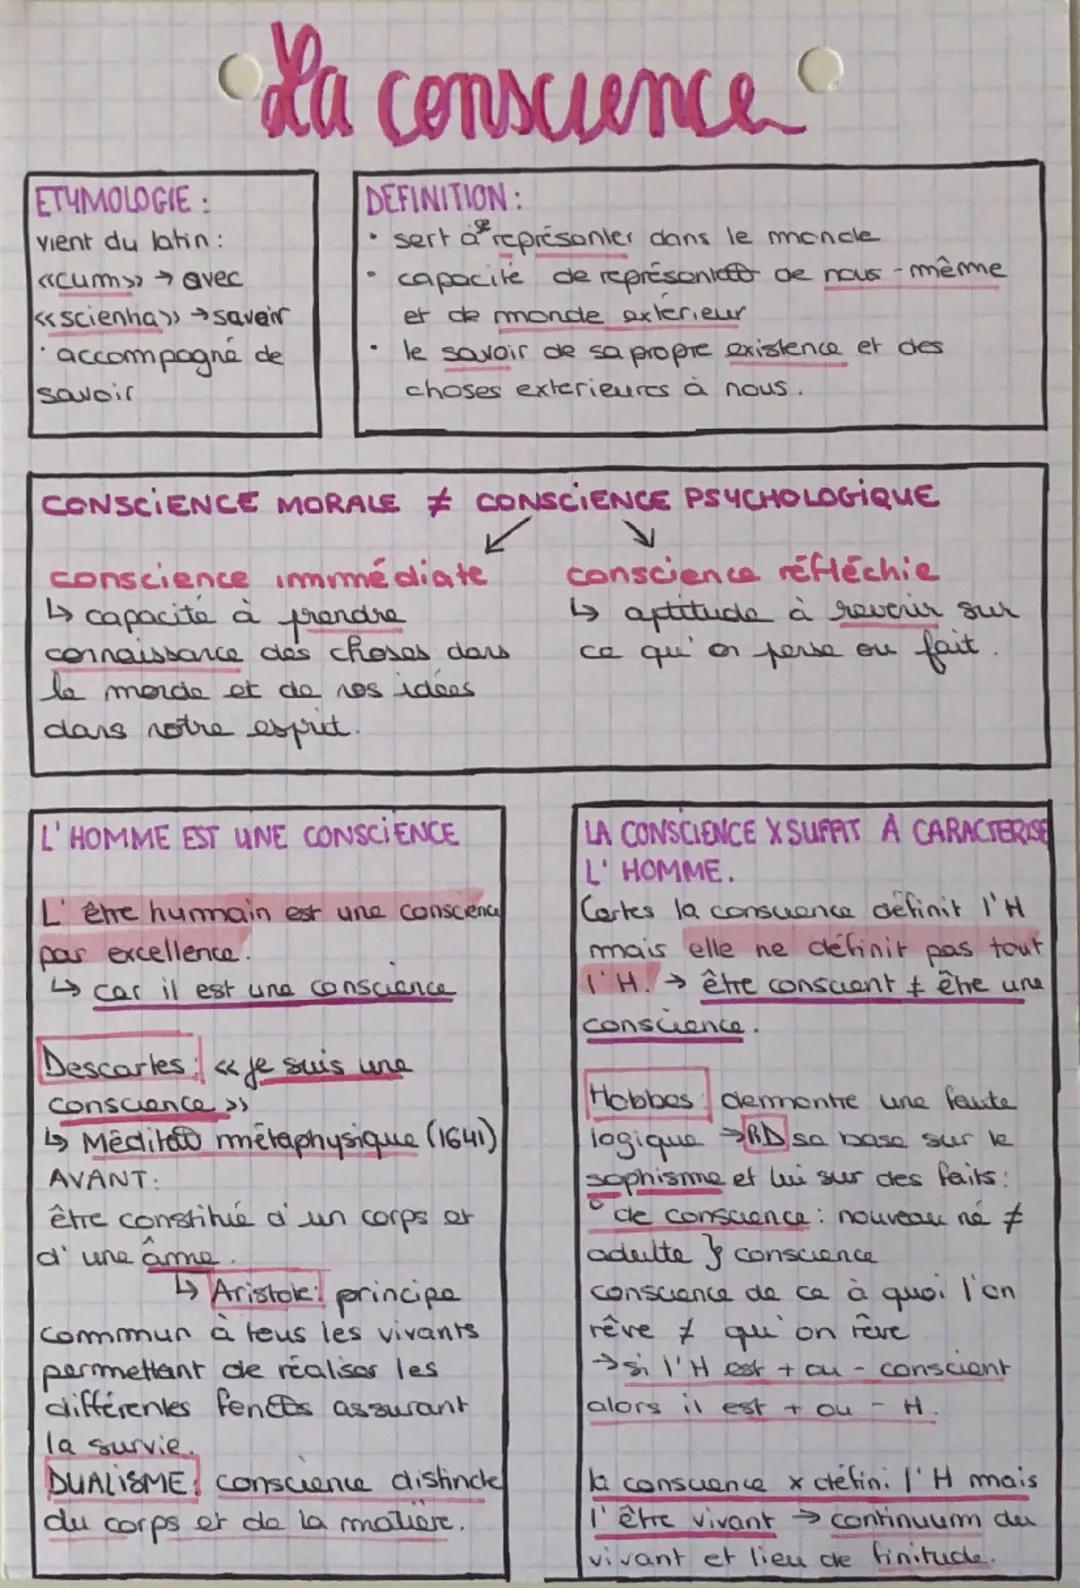 La conscience
ETYMOLOGIE :
vient du latin :
«cum» → avec
«scientia» → savoir
· accompagné de
savoir
DEFINITION :
• sert à se représenter dans le monde
• capacité de représentat° de nous-même
et de monde extérieur
• le savoir de sa propre existence et des
choses exterieures à nous.
CONSCIENCE MORALE ≠ CONSCIENCE PSYCHOLOGIQUE
conscience immédiate
↳ capacité à prendre
connaissance des choses dans
le monde et de nos idées
dans notre esprit.
conscience réfléchie
↳ aptitude à revenir sur
ce qu'on pense ou fait.
L'HOMME EST UNE CONSCIENCE
L'être humain est une conscience
par excellence.
↳ car il est une conscience
Descartes : «je suis une
conscience»
↳ Méditat° métaphysique (1641)
AVANT :
être constitué d'un corps et
d'une âme.
↳ Aristote : principe
commun à tous les vivants
permettant de réaliser les
différentes fonct°s assurant
la survie.
DUALISME : conscience distincte
du corps et de la matière.
LA CONSCIENCE X SUFFIT A CARACTERISE
L'HOMME.
Certes la conscience définit l'H
mais elle ne définit pas tout
l'H. → être conscient ≠ être une
conscience.
Hobbes : demontre une faute
logique → RD se base sur le
sophisme et lui sur des faits :
° de conscience : nouveau né ≠
adulte } conscience
conscience de ce à quoi l'on
rêve ≠ qu'on rêve
→ si l'H est + ou - conscient
alors il est + ou - H.
la conscience x défini l'H mais
l'être vivant → continuum du
vivant et lieu de finitude.